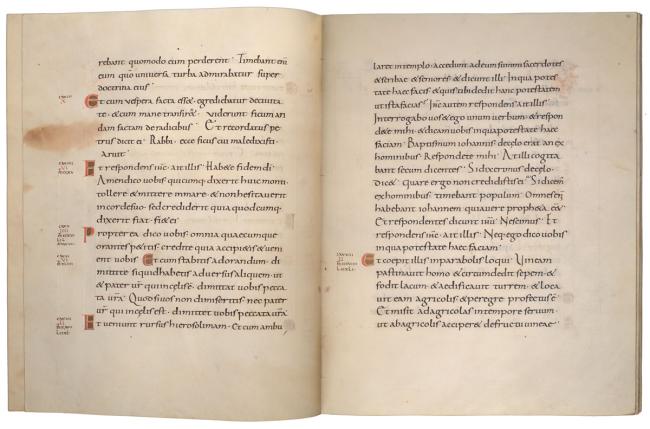 rebant quomodo eum perderent · Timebant eni
eum quo universa turba admirabatur super
doctrina eius
Et cum vespera facta esset · egrediebatur decivita
te · & cum mane transirent · viderunt ficum ari
dam factam de radicibus · Et recordatus pe
trus dicit ei · Rabbi · ecce ficus cui maledixisti ·
aruit
Et respondens ihc · ait illis · Habete fidem di
Amen dico vobis quicumque dixerit huic monti ·
tollere & mittere in mare · & non hesitaverit
in corde suo · sed crediderit quia quodcumq;
dixerit fiat · fi& ei
Propterea dico vobis · omnia quaecumque
orantes petitis · credite quia accipietis & veni
ent vobis · Et cum stabitis ad orandum · di
mittite siquid habetis adversus aliquem · ut
& pater vr qui in celis e · dimittat vobis pecca
ta vra · Quod si vos non dimiseritis · nec pater
vr qui in celis est · dimittet vobis peccata vra
Et veniunt rursus hierosolimam · Et cum ambu
laret in templo · accedunt ad eum summi sacerdotes
& scribae & seniores · & dicunt illi · In qua potes
tate haec facis · & quis tibi dedit hanc potestatem
ut ista facias · Ihc autem respondens ait illis ·
Interrogabo vos & ego unum verbum · & respon
dete mihi · & dicam vobis in qua potestate haec
faciam · Baptismum iohannis de celo erat an ex
hominibus · Respondete mihi · At illi cogita
bant secum dicentes · Si dixerimus de celo ·
dicet · quare ergo non credidistis ei · Si dixerim
ex hominibus · timebant populum · Omnes eni
habebant iohannem quia vere propheta e&
Et respondentes dicunt ihu · Nescimus · Et
respondens ihc · ait illis · Neq; ego dico vobis
in qua potestate haec faciam ·
Et coepit illis in parabolis loqui · Vineam
pastinavit homo & circumdedit sepem · &
fodit lacum · & aedificavit turrem · & loca
vit eam agricolis & peregre profectus e
Et misit ad agricolas in tempore servum ·
ut ab agricolis acciperet de fructu vineae ·